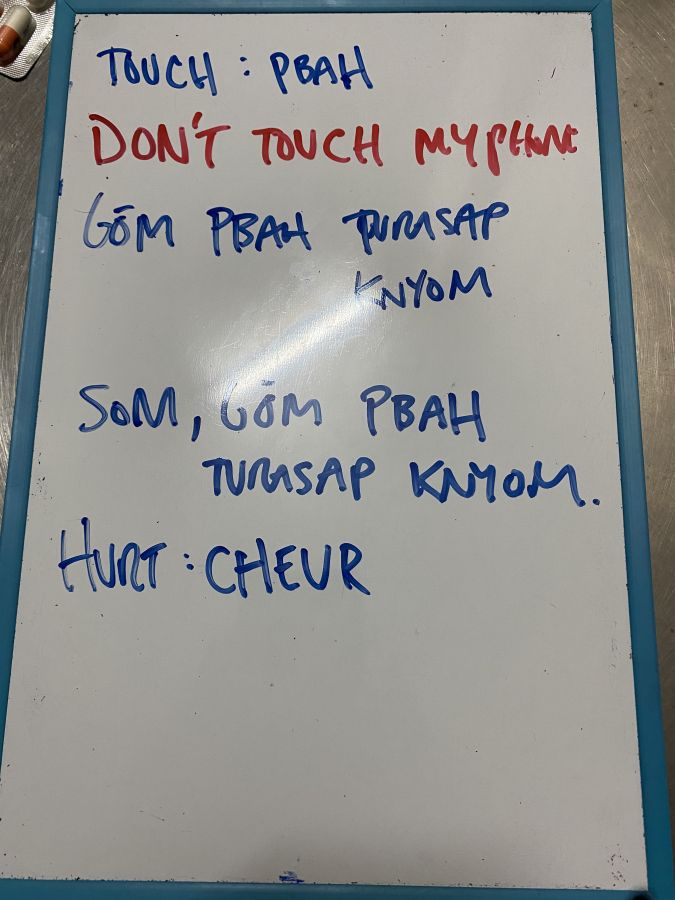 TOUCH : PBAH
DON'T TOUCH MY PHONE
GŌM PBAH TURASAP
KNYOM
SOM, GŌM PBAH
TURASAP KNYOM.
HURT : CHEUR